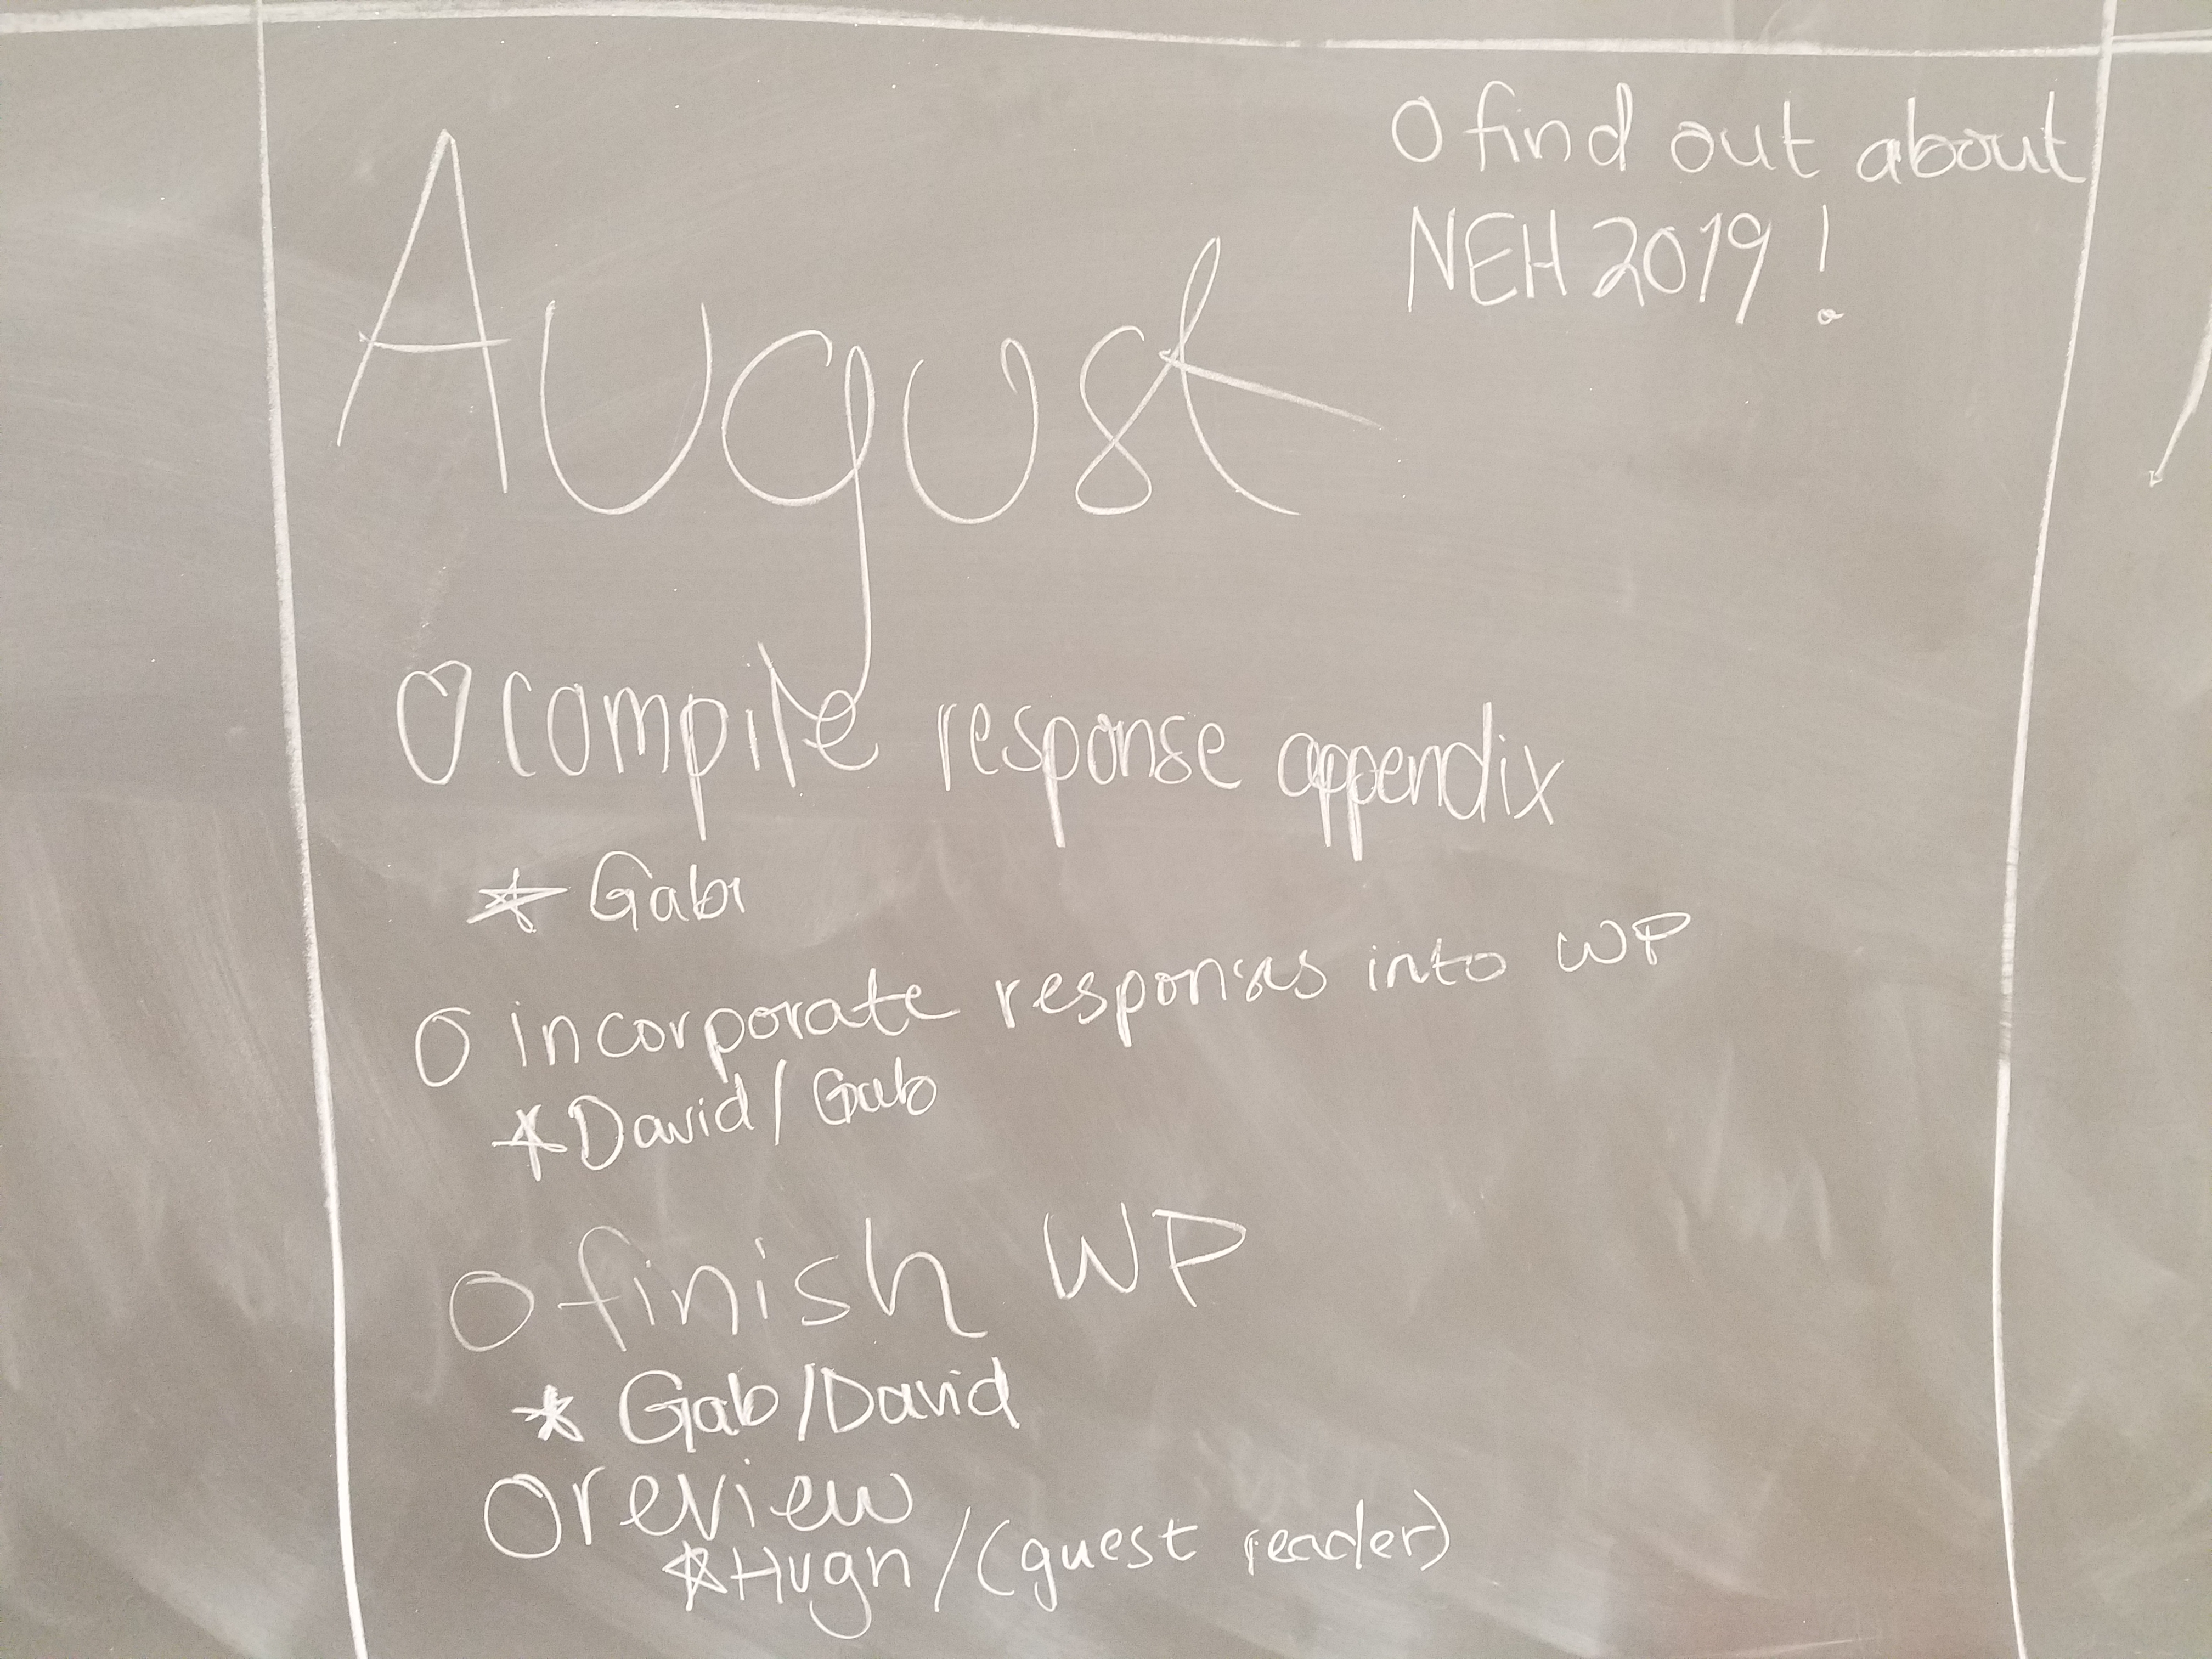 O find out about
NEH 2019!
August
O compile response appendix
* Gabi
O incorporate responses into WP
* David/Gab
O finish WP
* Gab/David
O review
* Hugh/(guest reader)